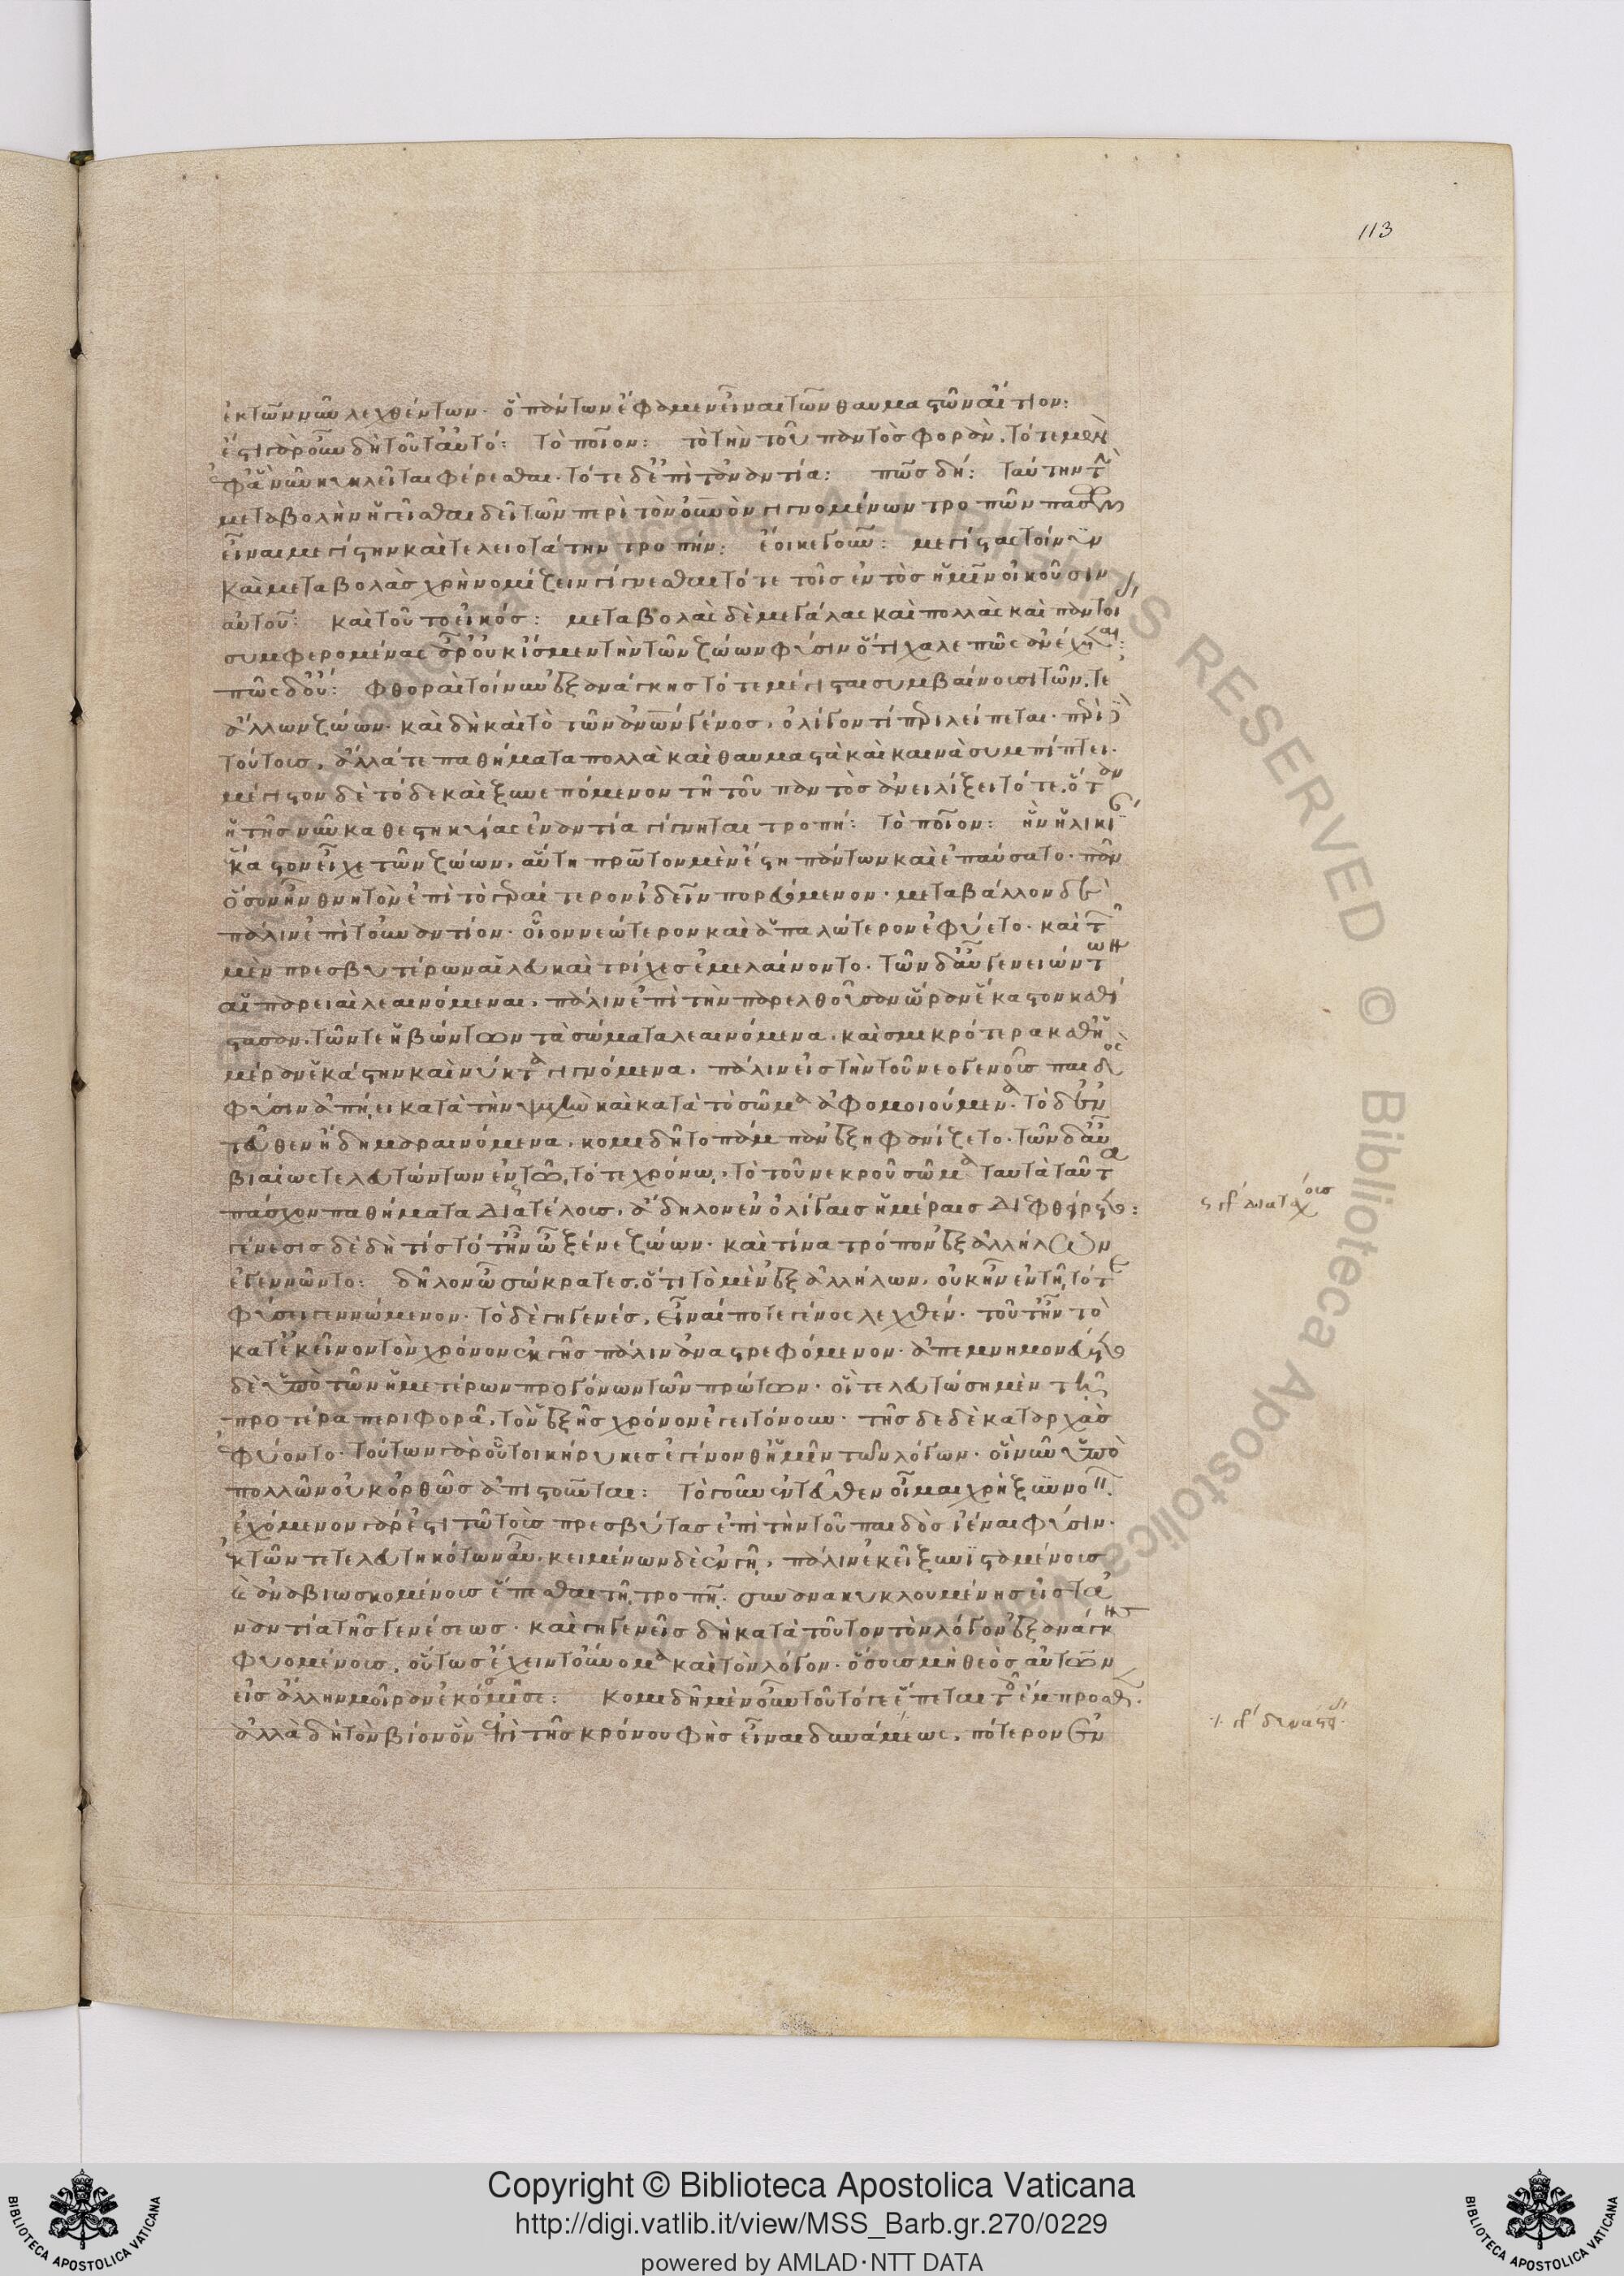 113
ἐκ τῶν νῦν λεχθέντων· ὃ πάντων ἔφαμεν εἶναι τῶν θαυμαστῶν αἴτιον:
ἔστι γὰρ οὖν δὴ τοῦτ' αὐτό: τὸ ποῖον: τὸ τὴν τοῦ παντὸς φορὰν, τότε μὲν
ἐφ' ἃ νῦν κυκλεῖται φέρεσθαι· τότε δ' ἐπὶ τἀναντία: πῶς δή: ταύτην τὴν
μεταβολὴν ἡγεῖσθαι δεῖ τῶν περὶ τὸν οὐρανὸν γιγνομένων τροπῶν πασῶν
εἶναι μεγίστην καὶ τελειοτάτην τροπήν: ἔοικε γοῦν: μεγίστας τοίνυν
καὶ μεταβολὰς χρὴ νομίζειν γίγνεσθαι τότε τοῖς ἐντὸς ἡμῖν οἰκοῦσιν
αὐτοῦ: καὶ τοῦτο εἰκός: μεταβολαὶ δὲ μεγάλαι καὶ πολλαὶ καὶ παντοῖαι
συμφερόμεναι ἆρ' οὐκ ἴσμεν τὴν τῶν ζώων φύσιν ὅτι χαλεπῶς ἀνέχεται:
πῶς δ' οὔ: φθοραὶ τοίνυν ἐξ ἀνάγκης τότε μέγισται συμβαίνουσι τῶν τε
ἄλλων ζώων· καὶ δὴ καὶ τὸ τῶν ἀνων γένος, ὀλίγον τι περιλείπεται· περὶ δὲ
τούτους, ἄλλά τε παθήματα πολλὰ καὶ θαυμαστὰ καὶ καινὰ συμπίπτει·
μέγιστον δὲ τόδε καὶ ξυνεπόμενον τῇ τοῦ παντὸς ἀνειλίξει τότε, ὅταν
ἡ τῆς νῦν καθεστηκυίας ἐναντία γίγνηται τροπή: τὸ ποῖον: ἣν ἡλικίαν
ἕκαστον εἶχε τῶν ζώων, αὕτη πρῶτον μὲν ἔστη πάντων καὶ ἐπαύσατο· πᾶν
ὅσον ἦν θνητὸν ἐπὶ τὸ γεραίτερον ἰδεῖν πορευόμενον· μεταβάλλον δὲ
πάλιν ἐπὶ τοὐναντίον· οἷον νεώτερον καὶ ἁπαλώτερον ἐφύετο· καὶ τῶν
μὲν πρεσβυτέρων αἱ λευκαὶ τρίχες ἐμελαίνοντο. τῶν δ' αὖ γενειώντων
αἱ παρειαὶ λεαινόμεναι, πάλιν ἐπὶ τὴν παρελθοῦσαν ὥραν ἕκαστον καθί
στασαν. τῶν τε ἡβώντων τὰ σώματα λεαινόμενα, καὶ σμικρότερα καθ' ἡ
μέραν ἑκάστην καὶ νύκτα γιγνόμενα, πάλιν εἰς τὴν τοῦ νεογενοῦς παιδὸς
φύσιν ἀπῄει κατά τε τὴν ψυχὴν καὶ κατὰ τὸ σῶμα ἀφομοιούμενα. τὸ δ' ἐν
τεῦθεν ἤδη μαραινόμενα, κομιδῇ τὸ πάμπαν ἐξηφανίζετο. τῶν δ' αὖ
βιαίως τελευτώντων ἐν τῷ τότε χρόνῳ, τὸ τοῦ νεκροῦ σῶμα ταυτὰ ταῦτα
πάσχον παθήματα διατέλους, ἄδηλον ἐν ὀλίγαις ἡμέραις διεφθείρετο:
γένεσις δὲ δὴ τίς τότ' ἦν ὦ ξένε ζώων· καὶ τίνα τρόπον ἐξ ἀλλήλων
ἐγεννῶντο: δῆλον ὦ σώκρατες, ὅτι τὸ μὲν ἐξ ἀλλήλων, οὐκ ἦν ἐν τῇ τότε
φύσει γεννώμενον· τὸ δὲ γηγενές, εἶναί ποτε γένος λεχθέν· τοῦτ' ἦν τὸ
κατ' ἐκεῖνον τὸν χρόνον ἐκ γῆς πάλιν ἀναστρεφόμενον· ἀπεμνημονεύετο
δὲ ὑπὸ τῶν ἡμετέρων προγόνων τῶν πρώτων· οἳ τελευτώσῃ μὲν τῇ
προτέρᾳ περιφορᾷ, τὸν ἑξῆς χρόνον ἐγειτόνουν· τῆς δὲ δὲ κατ' ἀρχὰς
ἐφύοντο· τούτων γὰρ οὗτοι κήρυκες ἐγένονθ' ἡμῖν τῶν λόγων. οἳ νῦν ὑπὸ
πολλῶν οὐκ ὀρθῶς ἀπιστοῦνται: τὸ γοῦν ἐντεῦθεν οἶμαι χρὴ ξυννοεῖν.
ἐχόμενον γάρ ἐστι τῷ τοὺς πρεσβύτας ἐπὶ τὴν τοῦ παιδὸς ἰέναι φύσιν·
ἐκ τῶν τετελευτηκότων αὖ, κειμένων δὲ ἐν γῇ, πάλιν ἐκεῖ ξυνισταμένους
καὶ ἀναβιωσκομένους ἕπεσθαι τῇ τροπῇ. συνανακυκλουμένης εἰς τἀ
ναντία τῆς γενέσεως· καὶ γηγενεῖς δὴ κατὰ τοῦτον τὸν λόγον ἐξ ἀνάγκης
φυομένους, οὕτως ἔχειν τοὔνομα καὶ τὸν λόγον· ὅσους μὴ θεὸς αὐτῶν
εἰς ἄλλην μοῖραν ἐκόμισε: κομιδῇ μὲν οὖν τοῦτό γε ἕπεται τοῖς ἔμπροσθεν.
ἀλλὰ δὴ τὸν βίον ὃν ἐπὶ τῆς κρόνου φῂς εἶναι δυνάμεως, πότερον ἐν
Copyright © Biblioteca Apostolica Vaticana
http://digi.vatlib.it/view/MSS_Barb.gr.270/0229
powered by AMLAD·NTT DATA